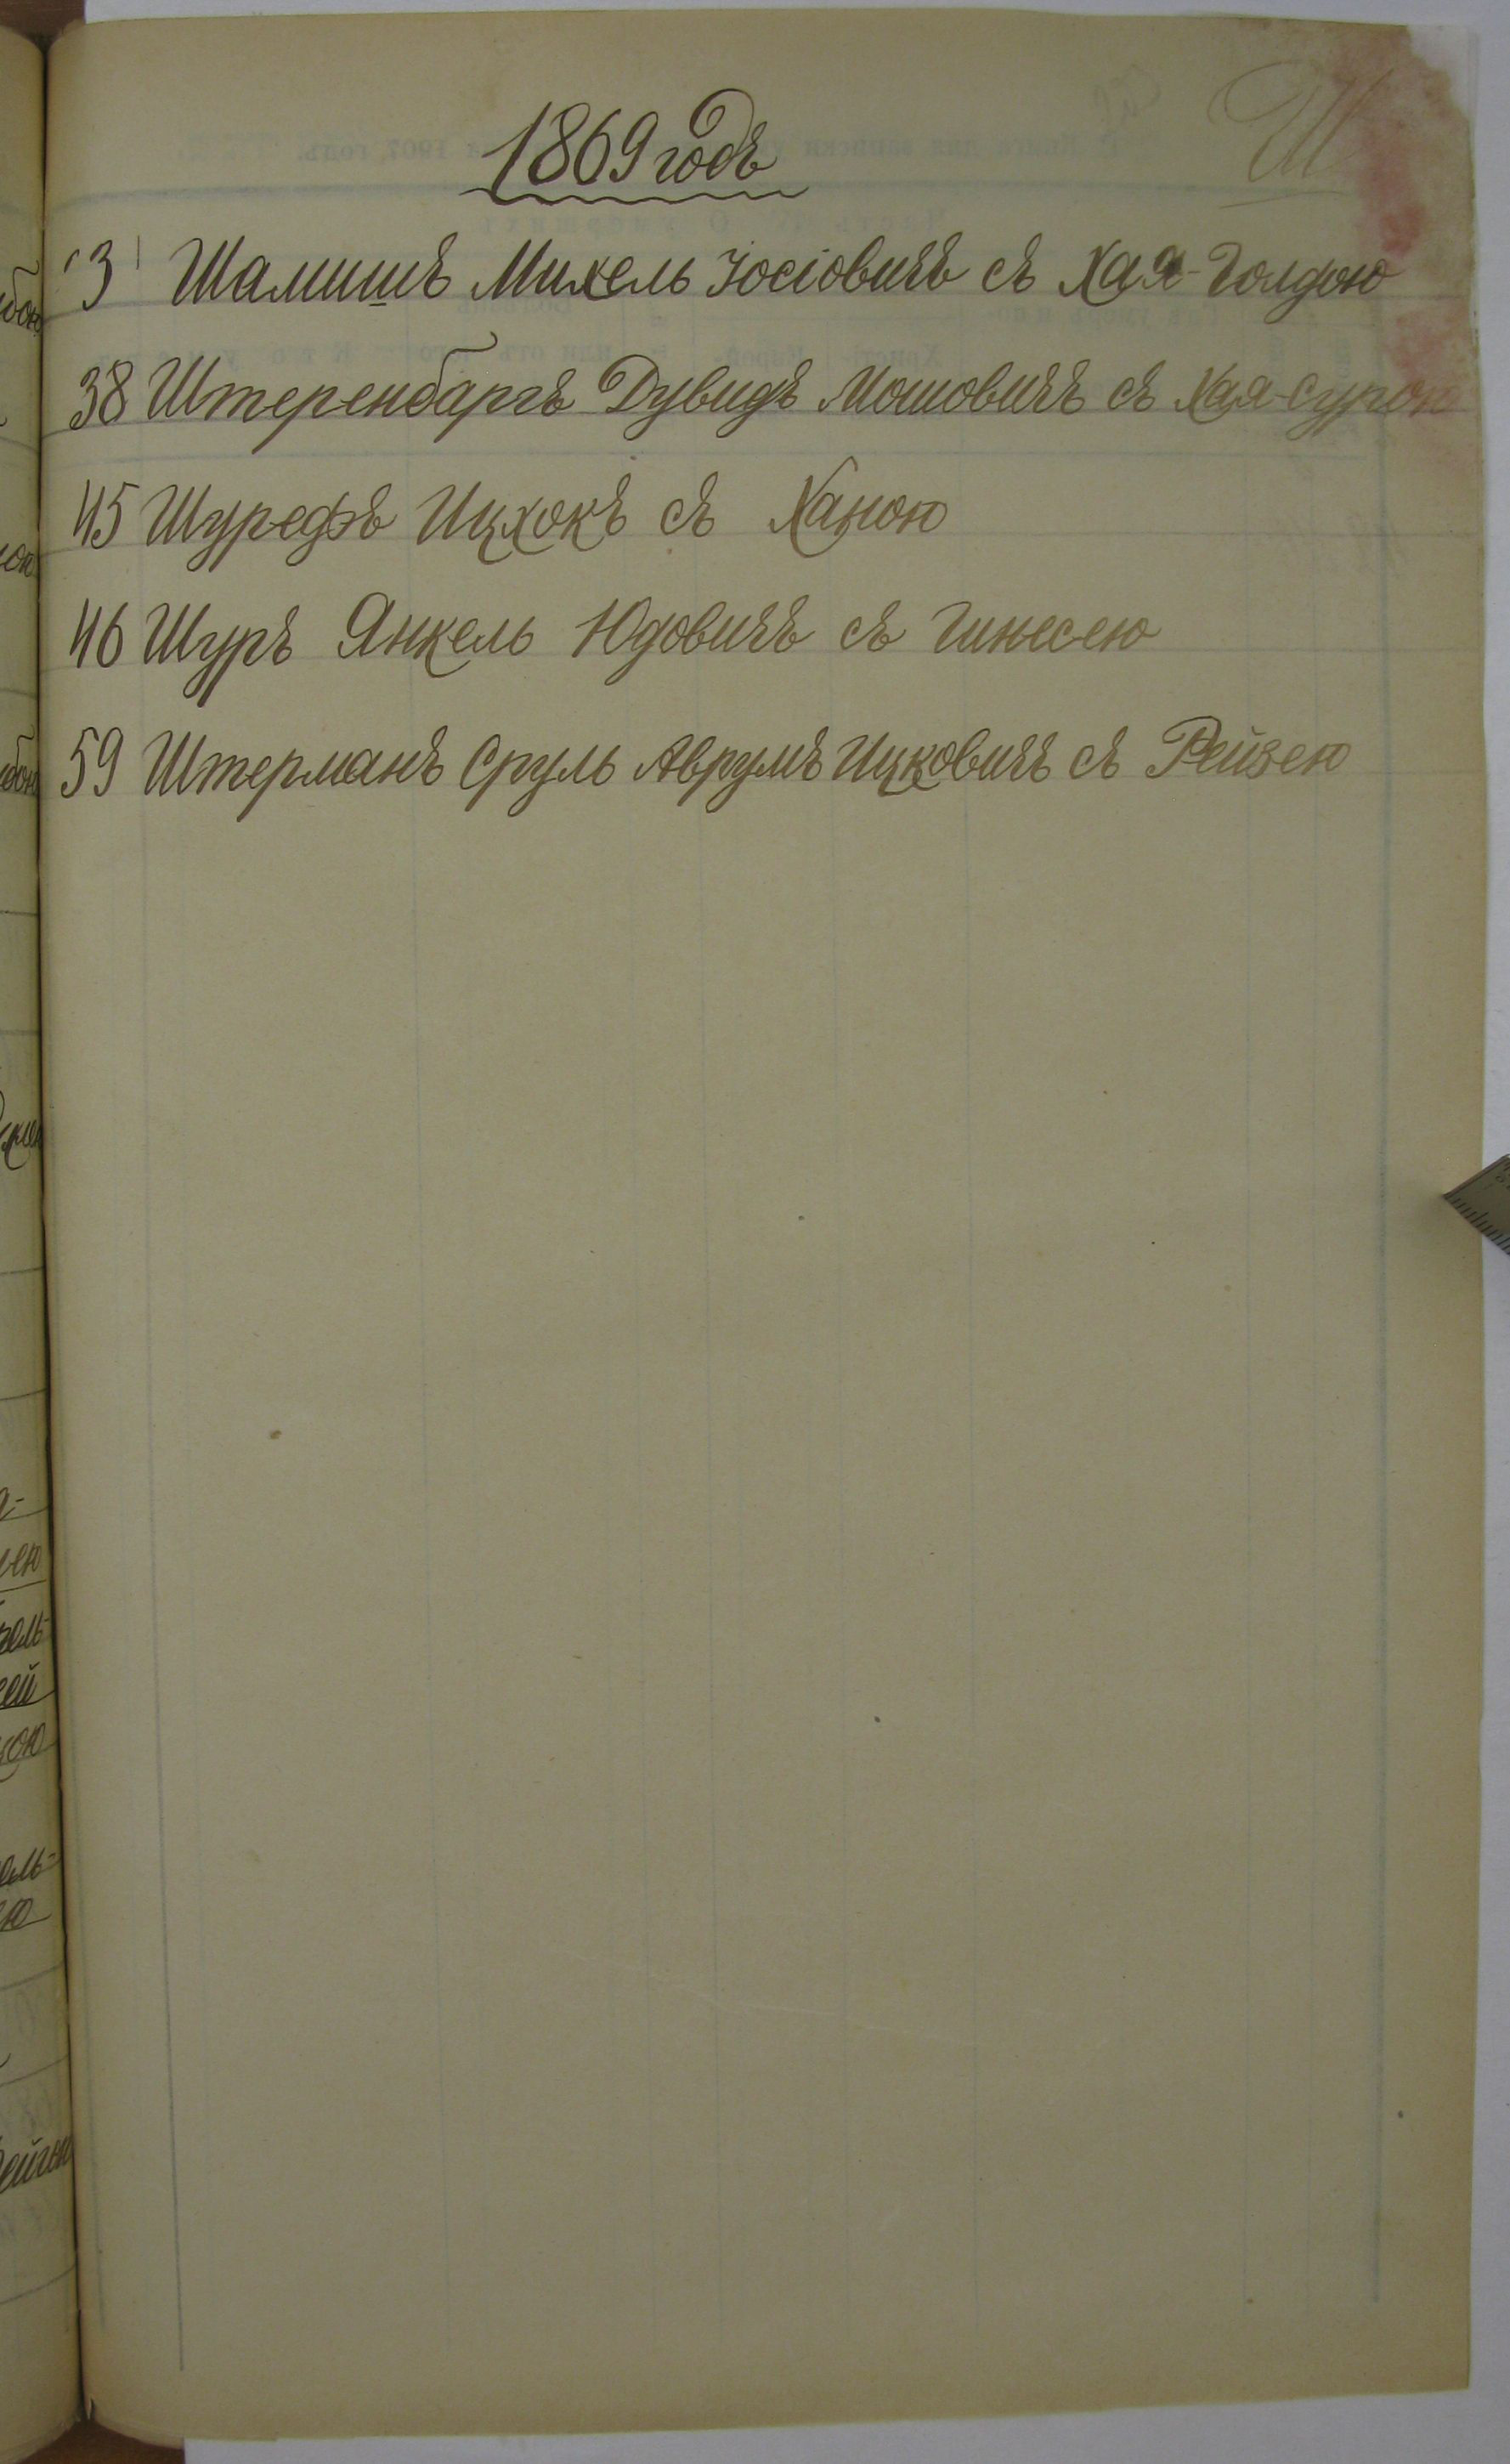 Ш
1869 годъ
3 Шамишъ Михель Іосіовичъ съ Хая-Голдою
38 Штеренбаргъ Дувидъ Мошовичъ съ Хая-Сурою
45 Шурефъ Ицхокъ съ Ханою
46 Шуръ Янкель Юдовичъ съ Гинесею
59 Штерманъ Сруль Аврумъ Ицковичъ съ Рейзею